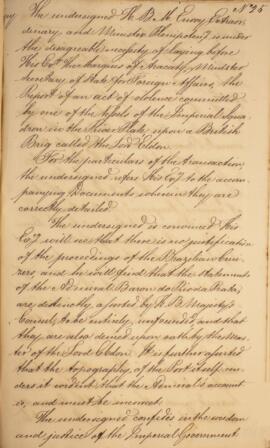 Nº 25
The undersigned H. B. M. Envoy Extraor
dinary and Minister Plenipotenty is under
the disagreeable necessity of laying before
His Exy the Marquez of Aracaty, Minister
Secretary of State for Foreign Affairs, the
Report of an act of violence committed
by one of the Vessels of the Imperial Squa
dron in the River Plate, upon a British
Brig called the Lord Eldon.
For the particulars of the transaction,
the undersigned refers His Exy to the accom
panying Documents wherein they are
correctly detailed.
The undersigned is convinced His
Exy will see that there is no justification
of the proceedings of the Brazilian Crui
zers, and he will find that the statements
of the Admiral Baron do Rio da Prata,
are distinctly asserted by H. B. Majesty's
Consul, to be entirely unfounded, and that
they are also denied upon oath by the Mas
ter of the Lord Eldon. It is further asserted
that the topography of the Port itself ren
ders it evident that the Admiral's account
is, and must be incorrect.
The undersigned confides in the wisdom
and justice of the Imperial Government